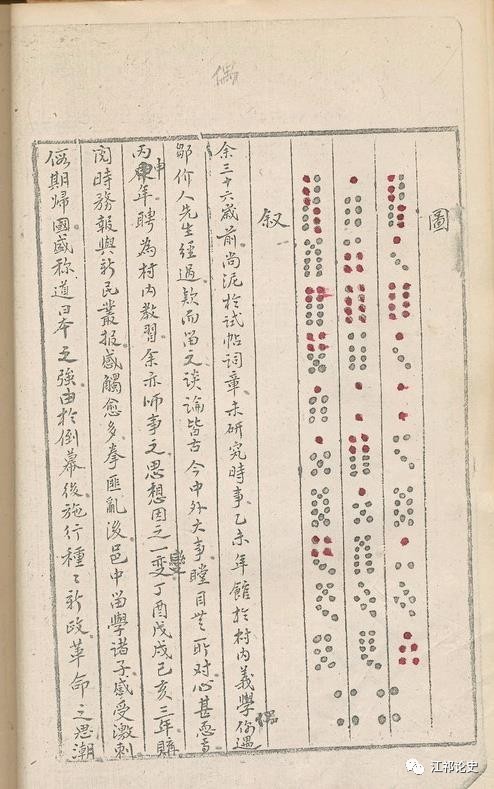 偶
圖
叙
余三十六歲前尚泥於試帖詞章未研究時事乙未年館於村内義學偶遇
偶
鄒介人先生經過欵而留之談論皆古今中外大事瞠目無所对心甚恧焉
丙申年聘為村内教習余亦师事之思想因之一變丁酉戊戌己亥三年購
申
變
閲時務報與新民叢报感觸愈多拳匪亂後邑中留學諸子感受激刺
假期歸國盛称道日本之強由於倒幕後施行種々新政革命之思潮
江祁论史